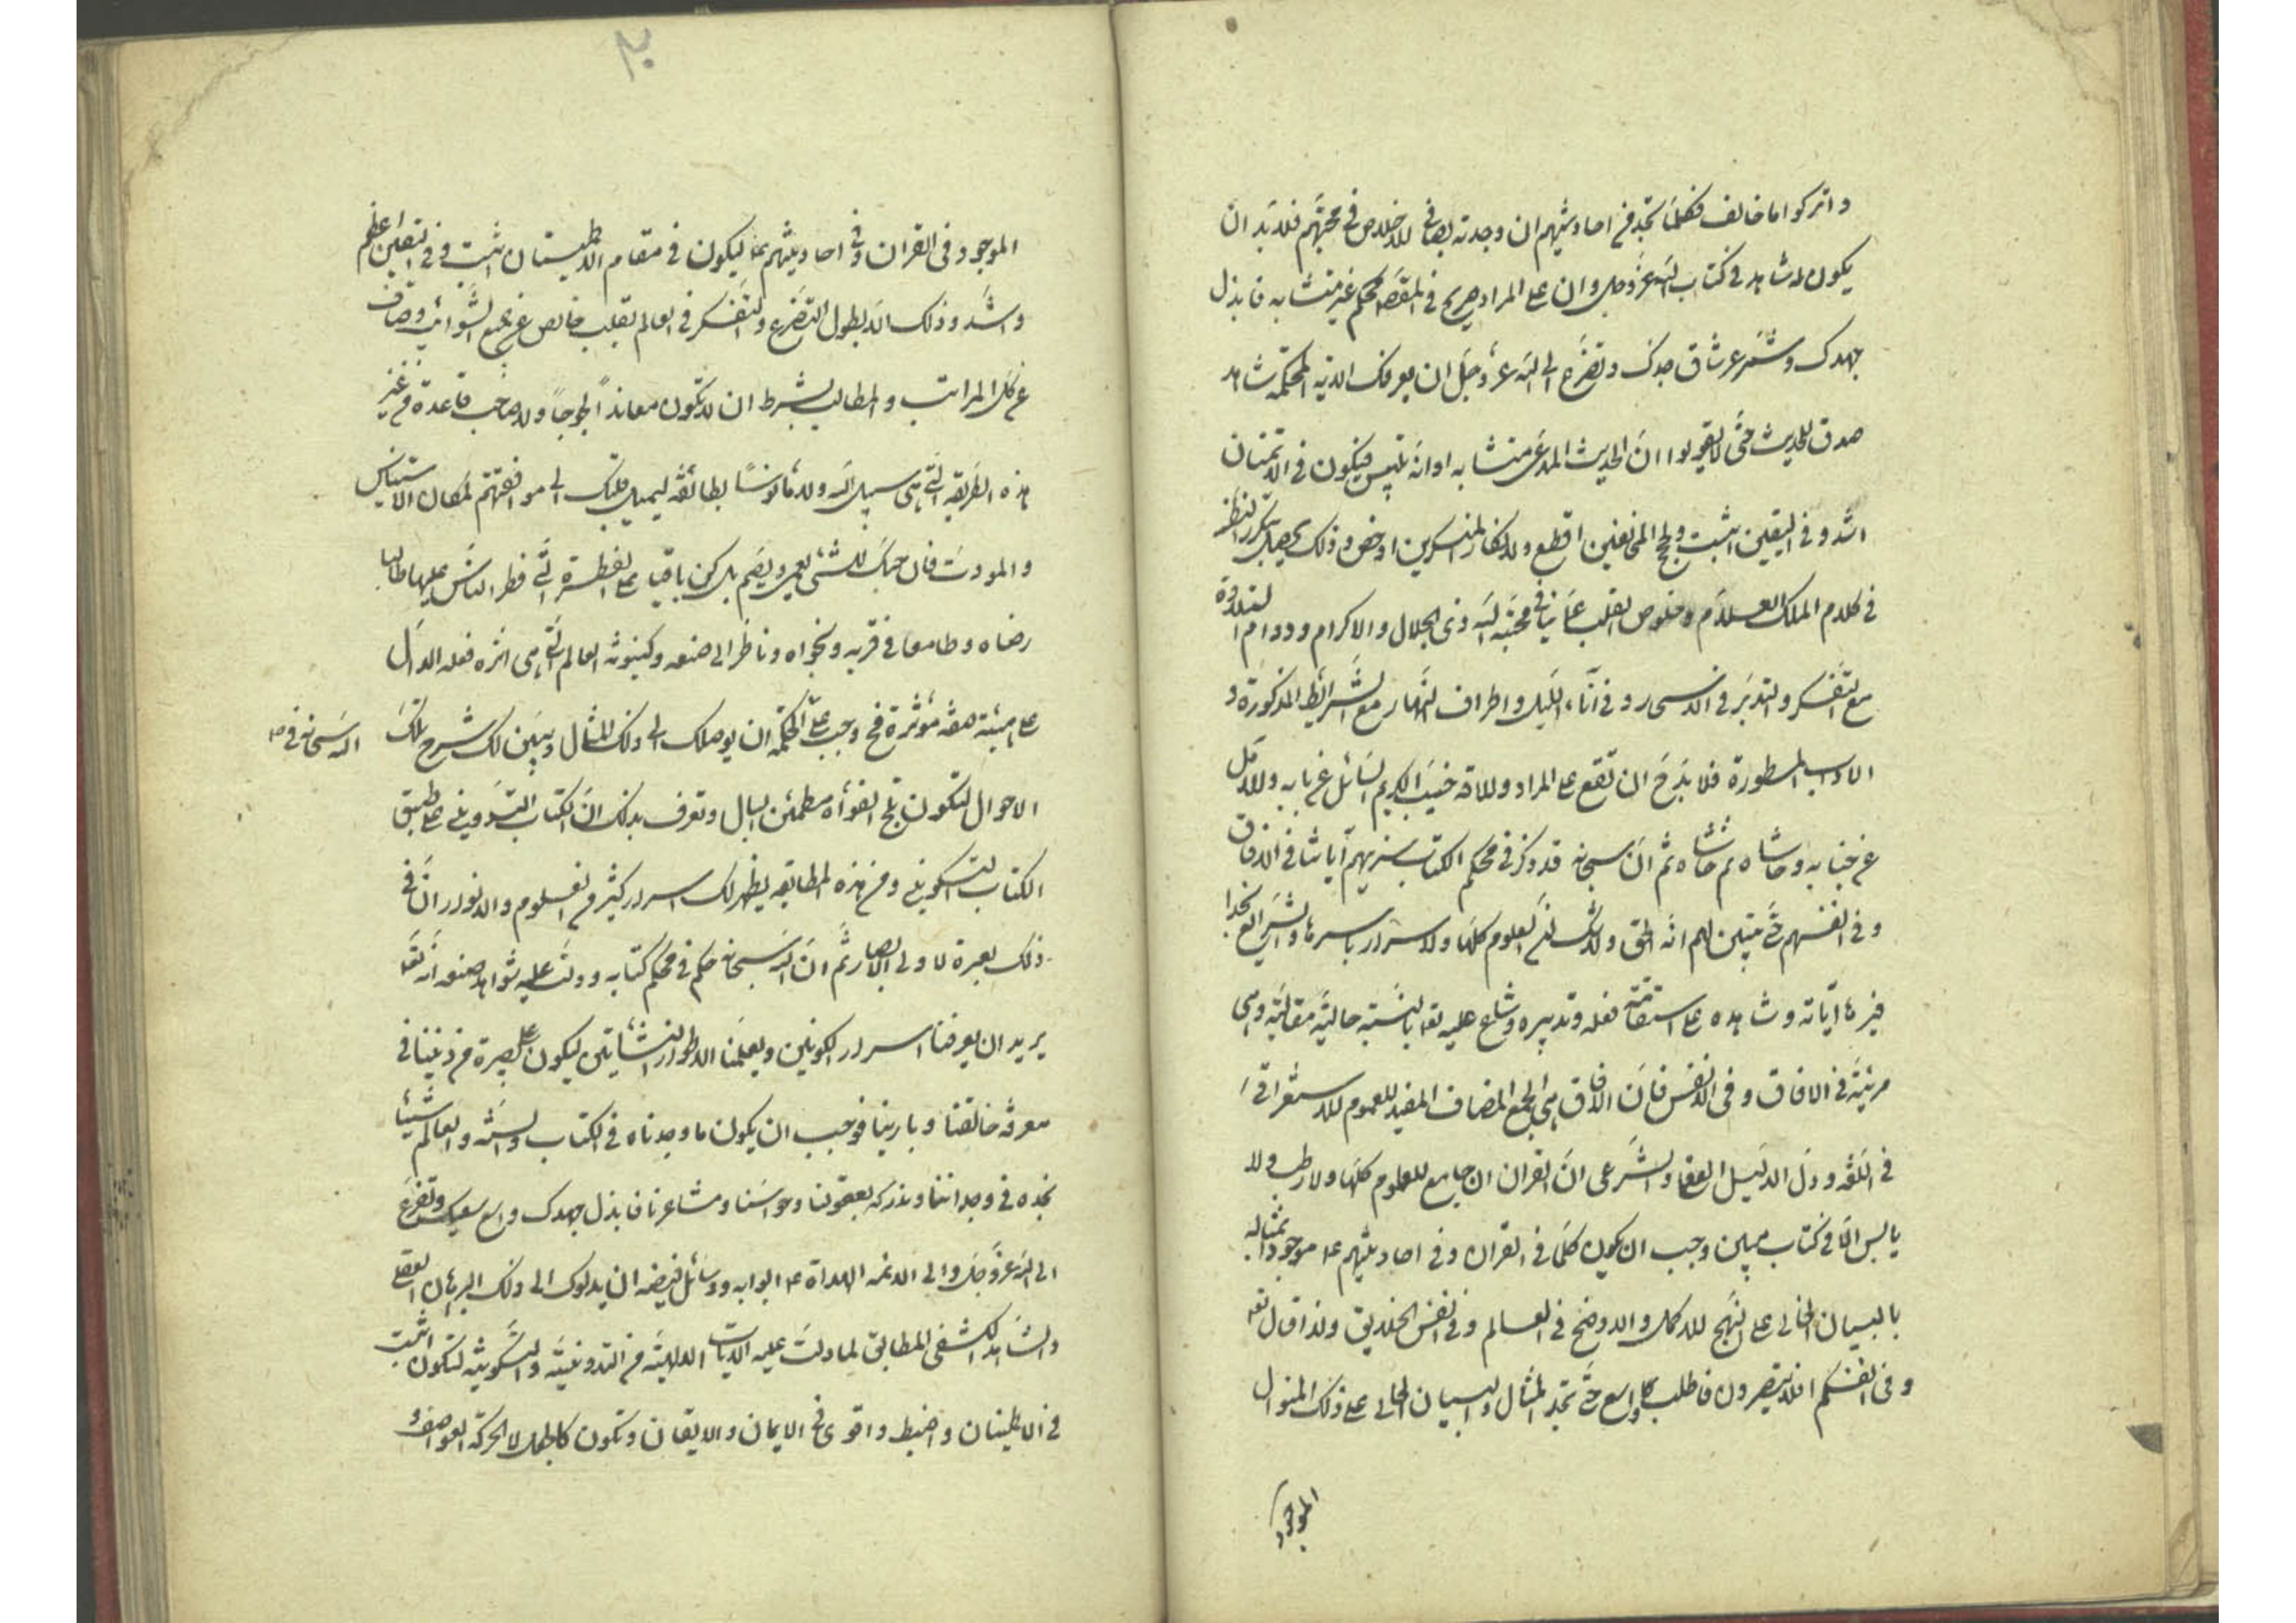 واتركوا ما خالف فكلما تجد في احاديثهم ان وجدته بصافي الاخلاص في محبتهم فلا بد ان
يكون له شاهد في كتاب الله عز وجل وان على المراد صريح في المقصد محكم غير متشابه فابذل
جهدك وشمر عن ساق جدك وتضرع الى الله عز وجل ان يعرفك الاية المحكمة شاهد
صدق للحديث حتى لا يقولوا ان الحديث المدعى متشابه او انه ليس فيكون في الامتنان
اشد وفي اليقين اثبت ولحجج المخالفين اقطع ولانكار المنكرين ادحض وذلك يحصل بتكرر النظر
في كلام الملك العلام وخلوص القلب عما ينافي محبة الله ذي الجلال والاكرام ودوام التلاوة
مع التفكر والتدبر في الاسحار وفي آناء الليل واطراف النهار مع الشرائط المذكورة و
الاداب المسطورة فلا بد ح ان تقع على المراد والا فه خيب الكريم السائل عن بابه والامل
عن جنابه وحاشاه ثم حاشاه ثم ان سبحانه قد ذكر في محكم الكتاب سنريهم آياتنا في الافاق
وفي انفسهم حتى يتبين لهم انه الحق ولا شك ان العلوم كلها والاسرار باسرها والشرايع
فيرها آياته وشاهده على استقامة فعله وتدبيره وشلع عليه تع بالنسبة حالية مقالية وهي
مرئية في الافاق وفي الانفس فان الافاق هي الجمع المضاف المفيد للعموم الاستغراقي
في اللغة ودل الدليل العقلي والشرعي ان القران جامع للعلوم كلها ولا رطب ولا
يابس الا في كتاب مبين وجب ان يكون كلما في القران وفي احاديثهم ع موجودا مثاله
بالبيان الحالي على النهج الاكمل والاوضح في العالم وفي انفس الخلايق ولذا قال تع
وفي انفسكم افلا تبصرون فاطلب واسع حتى تجد المثال والبيان الحالي على ذلك المنوال
الموجود
٢٠
الموجود في القران وفي احاديثهم ع ليكون في مقام الاطمينان اثبت وفي اليقين اعظم
واشد وذلك انه بطول التضرع والتفكر في العالم بقلب خالص عن جميع الشوائب وصاف
عن كل المراتب والمطالب بشرط ان لا تكون معاندا لجوجا ولا صاحب قاعدة من غير
هذه الطريقة التي هي سبيل الله ولا مأنوسا بطائفة ليميل قلبك الى موافقتهم لمكان الاستيناس
والمودت فان حبك للشئ يعمي ويصم بل كن باقيا على الفطرة التي فطر الناس عليها طالبا
رضاه وطامعا في قربه ونجواه وناظرا الى صنعه وكينونة العالم التي هي اثره فعله الدال
على هيئة صفة مؤثره فح وجب على الحكمة ان يوصلك الى ذلك المثال ويبين لك شرح تلك
الله سبحانه في ص
الاحوال لتكون ثلج الفؤاد مطمئن البال وتعرف بذلك ان الكتاب التدويني على طبق
الكتاب التكويني ومن هذه المطابقة يظهر لك اسرار كثير من العلوم والانوار ان في
ذلك لعبرة لاولي الابصار ثم ان الله سبحانه حكم في محكم كتابه ودلت عليه شواهد صنعه انه تع
يريد ان يعرفنا اسرار الكونين ويعلمنا الاطوار النشأتين ليكون على بصيرة من ديننا في
معرفة خالقنا وبارينا فوجب ان يكون ما وجدناه في الكتاب والسنة والعالم شيئا
نجده في وجداننا وندركه بعقولنا وحواسنا ومشاعرنا فابذل جهدك واسع سعيك وتضرع
الى الله عز وجل والى الائمة الهداة ع ابوابه ووسائل فيضه ان يدلوك الى ذلك البرهان العقلي
والشاهد الكشفي المطابق لما دلت عليه الايات الالهية من التدوينية والتكوينية لتكون اثبت
في الاطمينان واضبط واقوى في الايمان والايقان وتكون كالجبل لا تحركه العواصف و